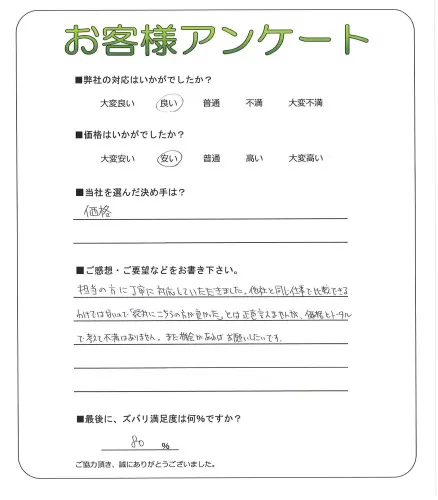 お客様アンケート
■弊社の対応はいかがでしたか？
大変良い 良い 普通 不満 大変不満
■価格はいかがでしたか？
大変安い 安い 普通 高い 大変高い
■当社を選んだ決め手は？
価格
■ご感想・ご要望などをお書き下さい。
担当の方に丁寧に対応していただきました。他社と同じ仕事で比較できる
わけではないので「絶対にこちらの方が良かった」とは正直言えませんが、価格とトータル
で考えて不満はありません。また機会があればお願いしたいです。
■最後に、ズバリ満足度は何%ですか？
80 %
ご協力頂き、誠にありがとうございました。